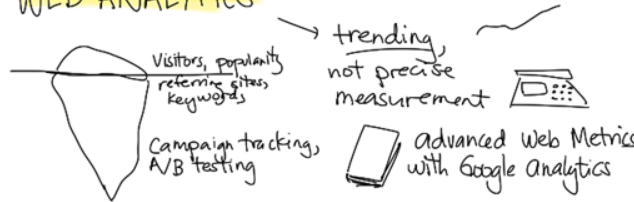 WEB ANALYTICS
Visitors, popularity
referring sites,
keywords
Campaign tracking,
A/B testing
trending,
not precise
measurement
advanced Web Metrics
with Google Analytics